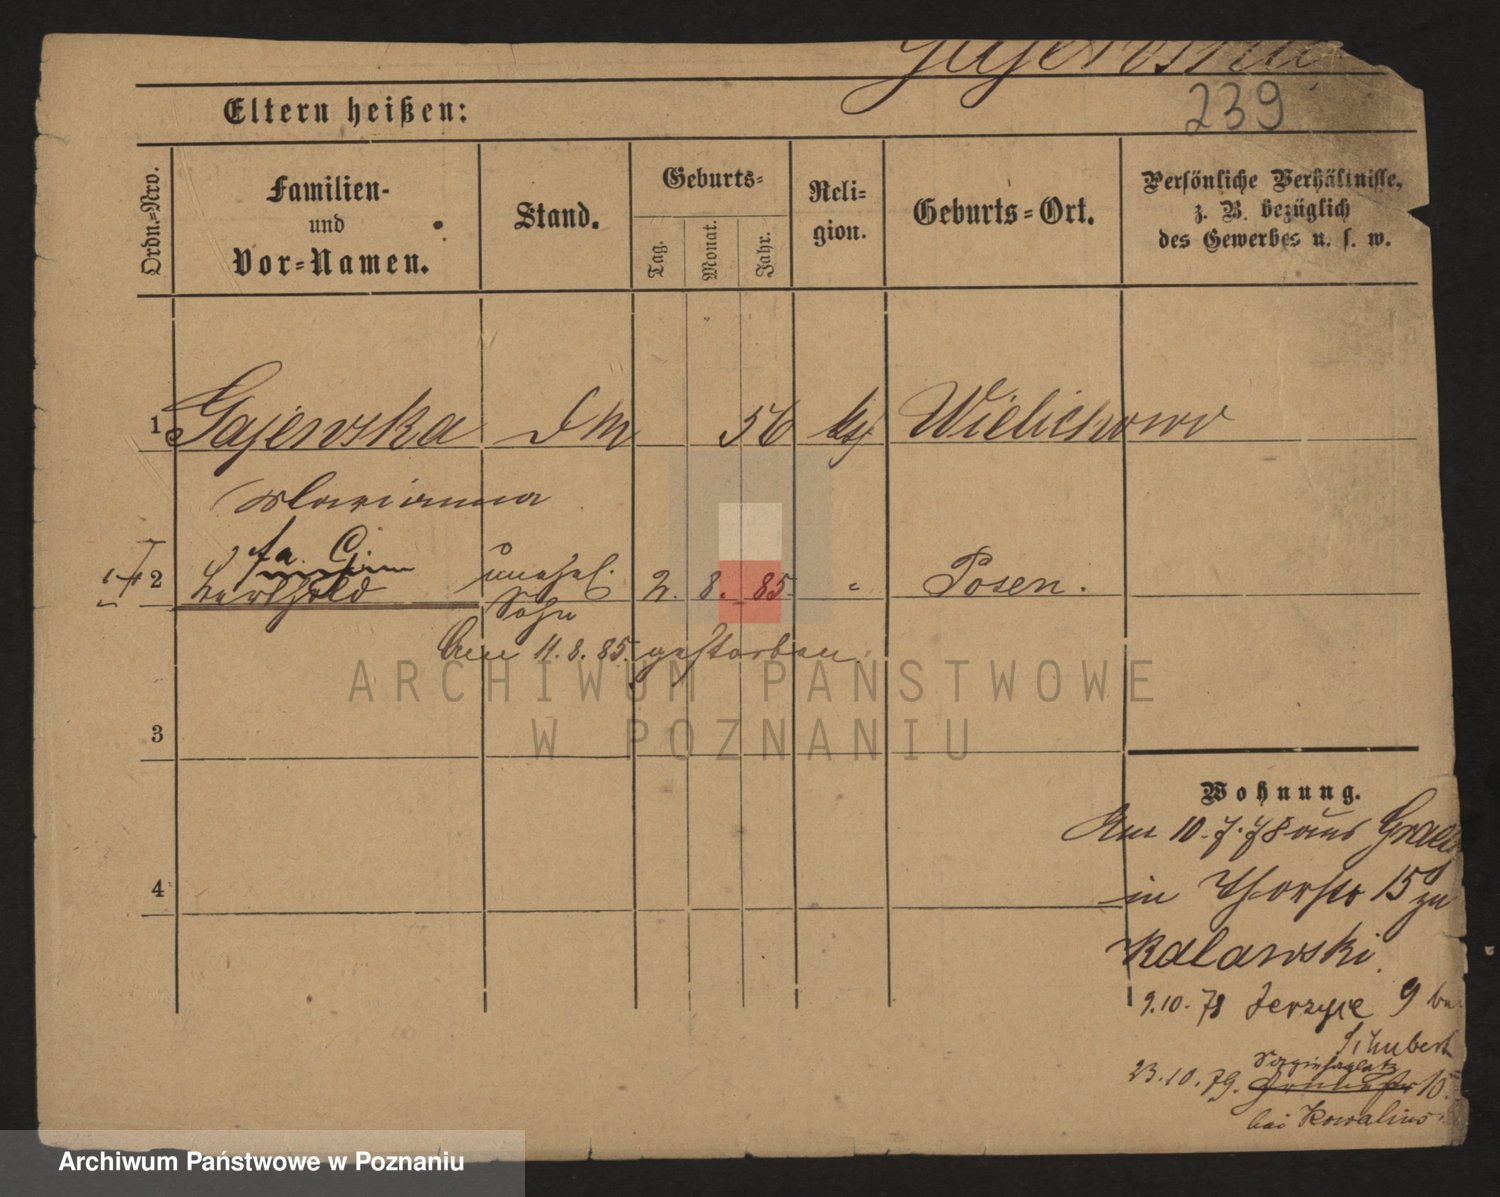 Gajewska
239
Eltern heißen:
Ordn.=Nro.
Familien-
und
Vor=Namen.
Stand.
Geburts=
Tag.
Monat.
Jahr.
Reli=
gion.
Geburts=Ort.
Persönliche Verhältnisse,
z. B. bezüglich
des Gewerbes u. s. w.
1 Gajewska DM 56 kt Wielichowo
Marianna
2 Berthold unehel. 2. 8. 85 " Posen.
Sohn
Am 11. 8. 85. gestorben.
3
4
Wohnung.
Am 10.7.78 aus
in Thorstr 15 zu
Kalawski
9.10.78 Jerzyce 9 bei
Schubert
23.10.79. 10.
bei
ARCHIWUM PAŃSTWOWE
W POZNANIU
Archiwum Państwowe w Poznaniu